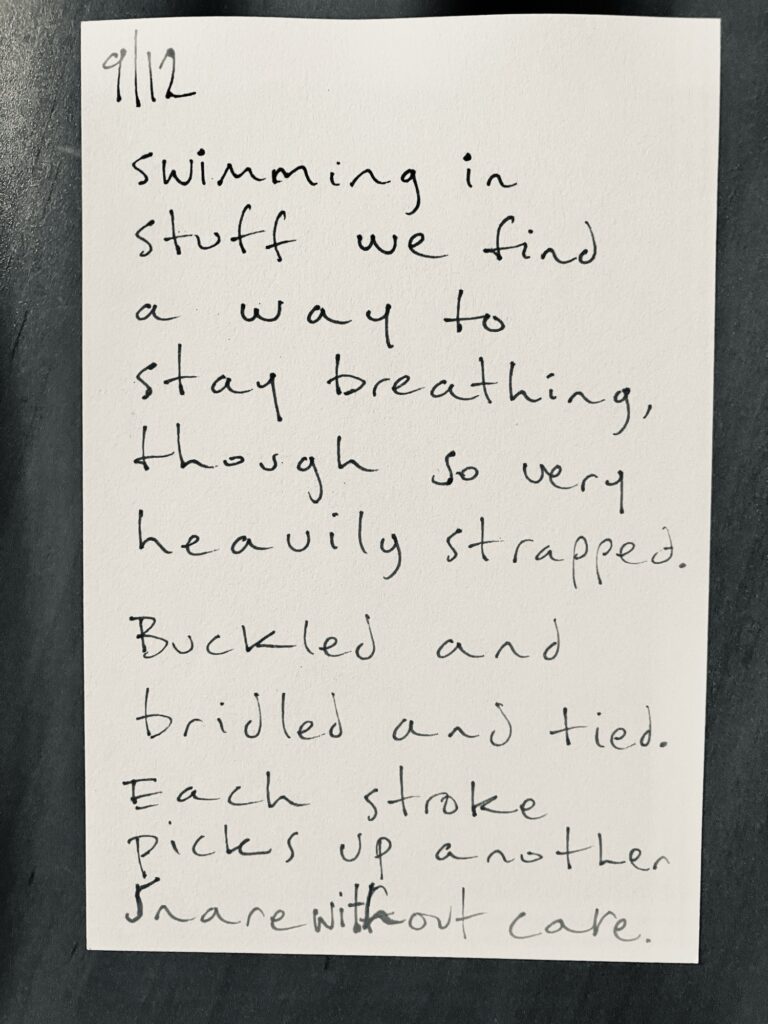 9/12
swimming in
stuff we find
a way to
stay breathing,
though so very
heavily strapped.
Buckled and
bridled and tied.
Each stroke
picks up another
snare without care.